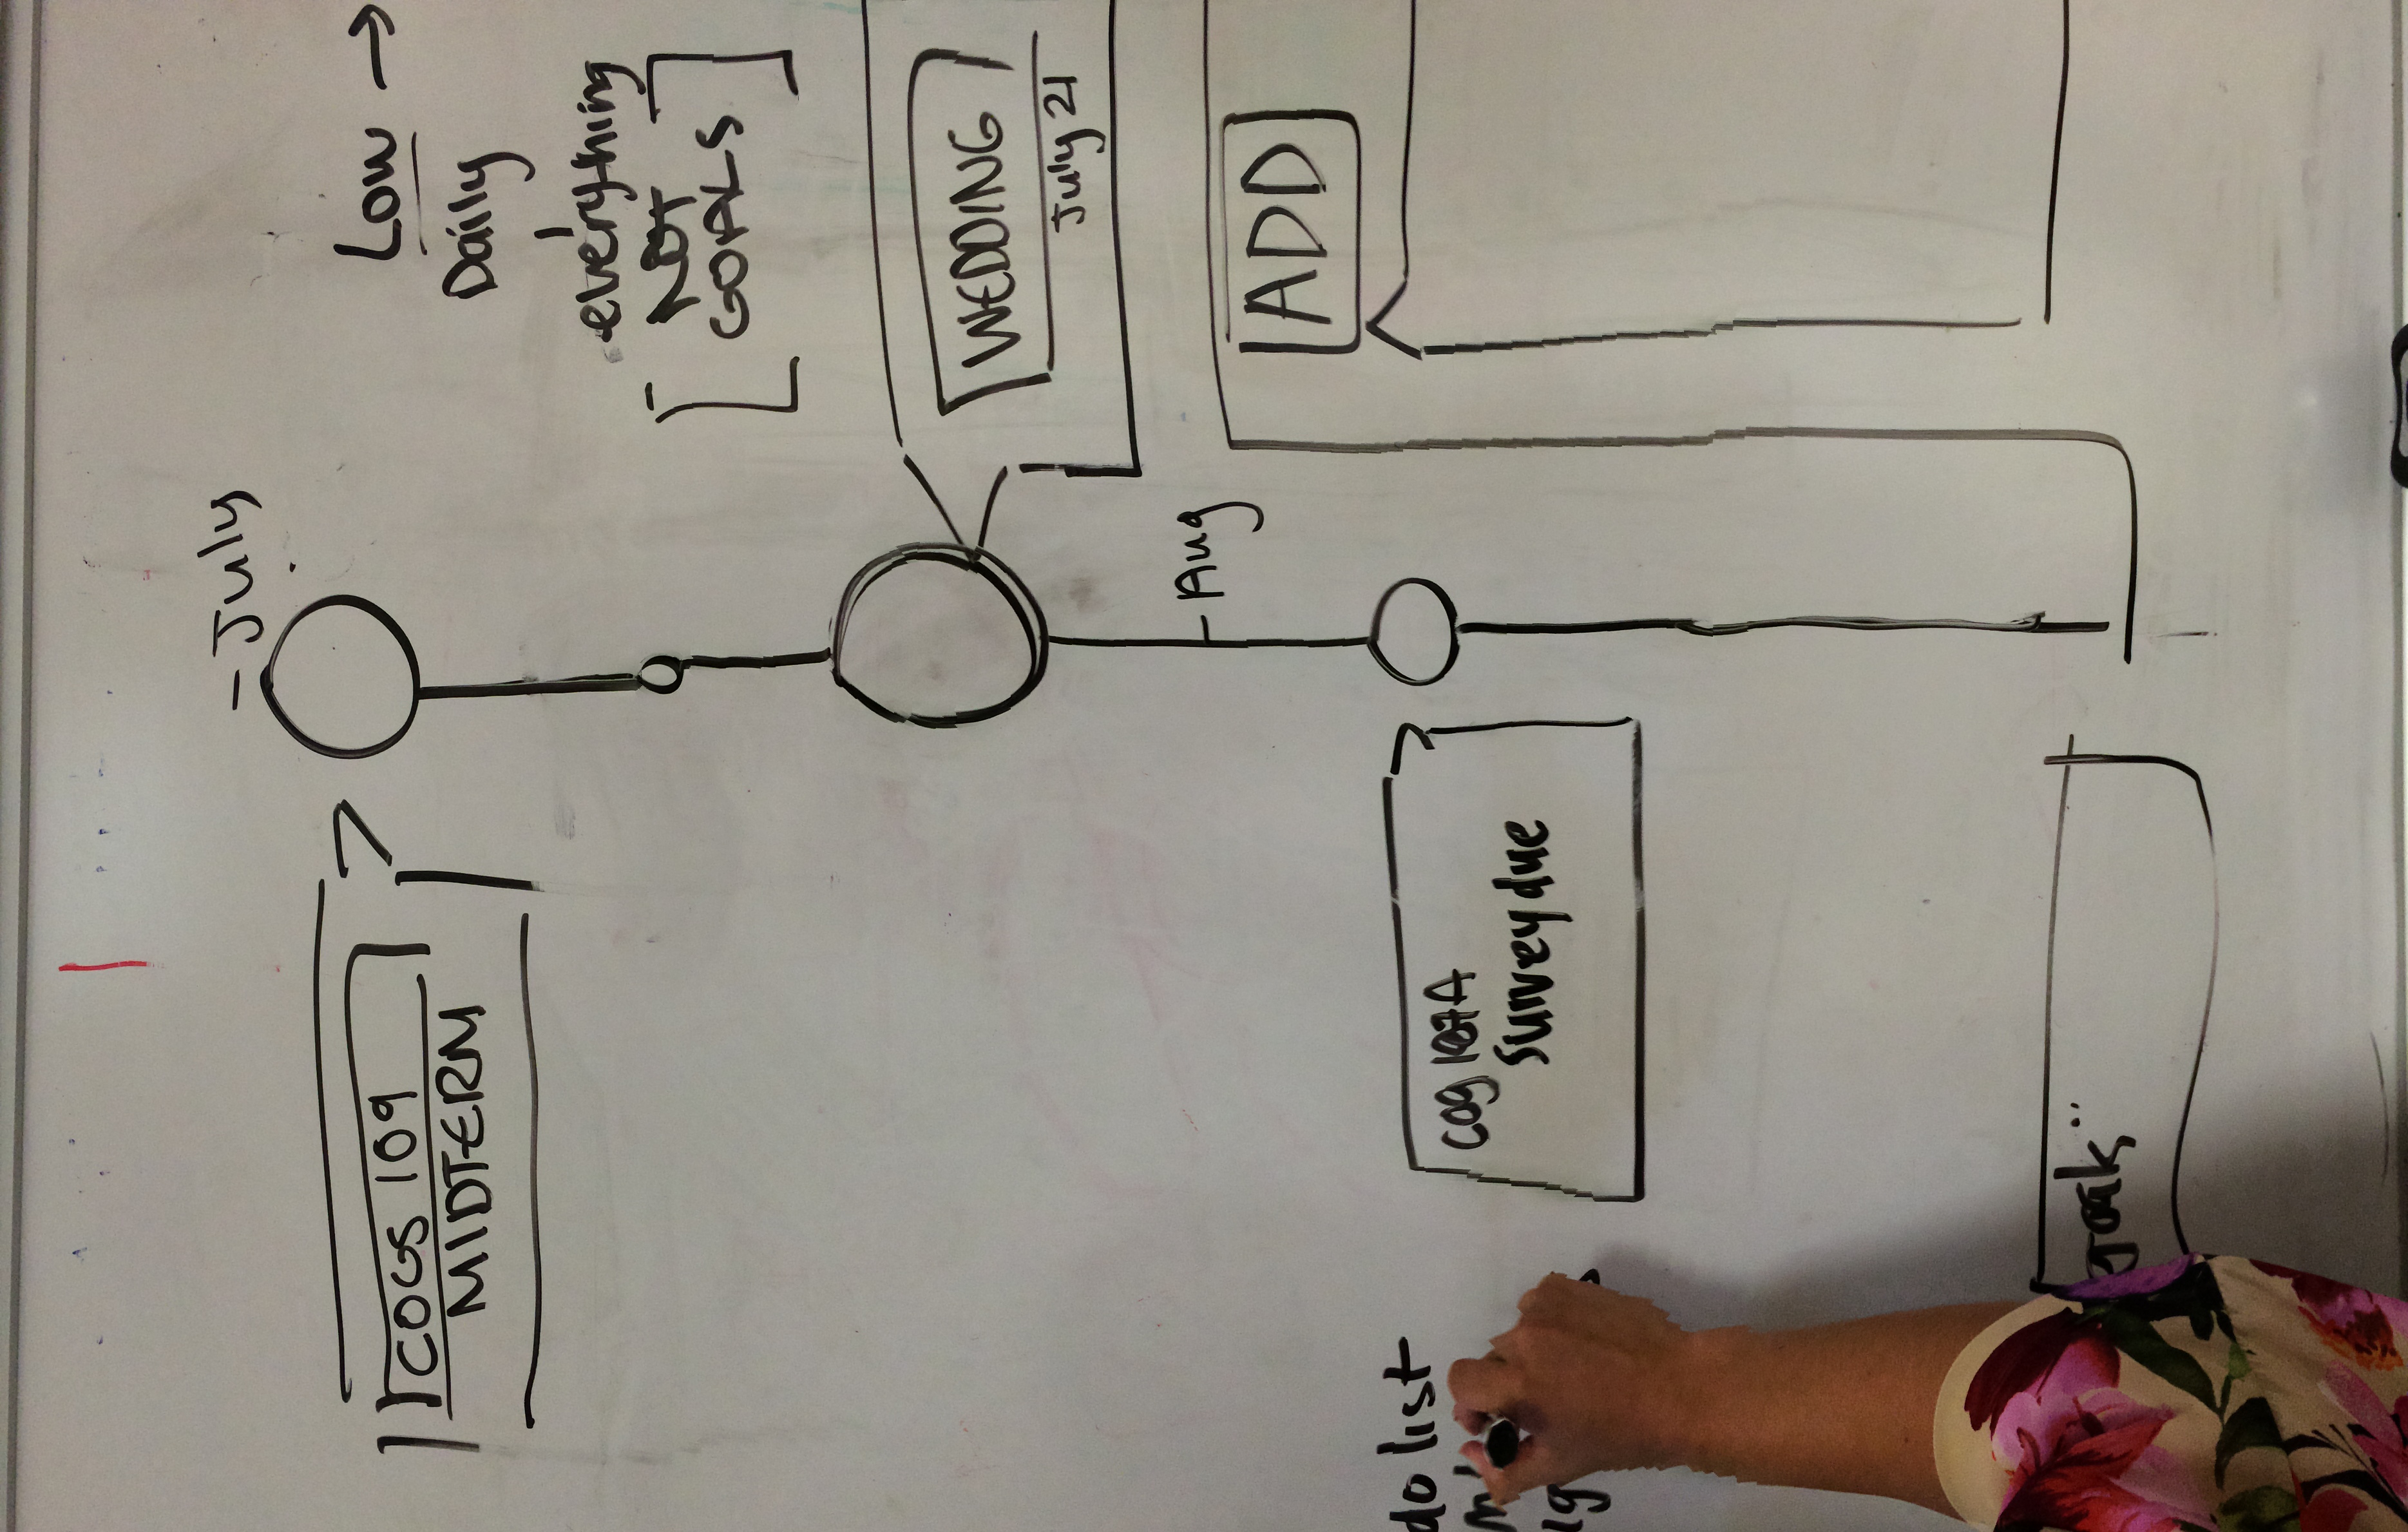 - July
COGS 109
MIDTERM
Low →
Daily
everything
NOT
GOALS
WEDDING
July 21
- Aug
ADD
do list
cog 187A
survey due
goals"